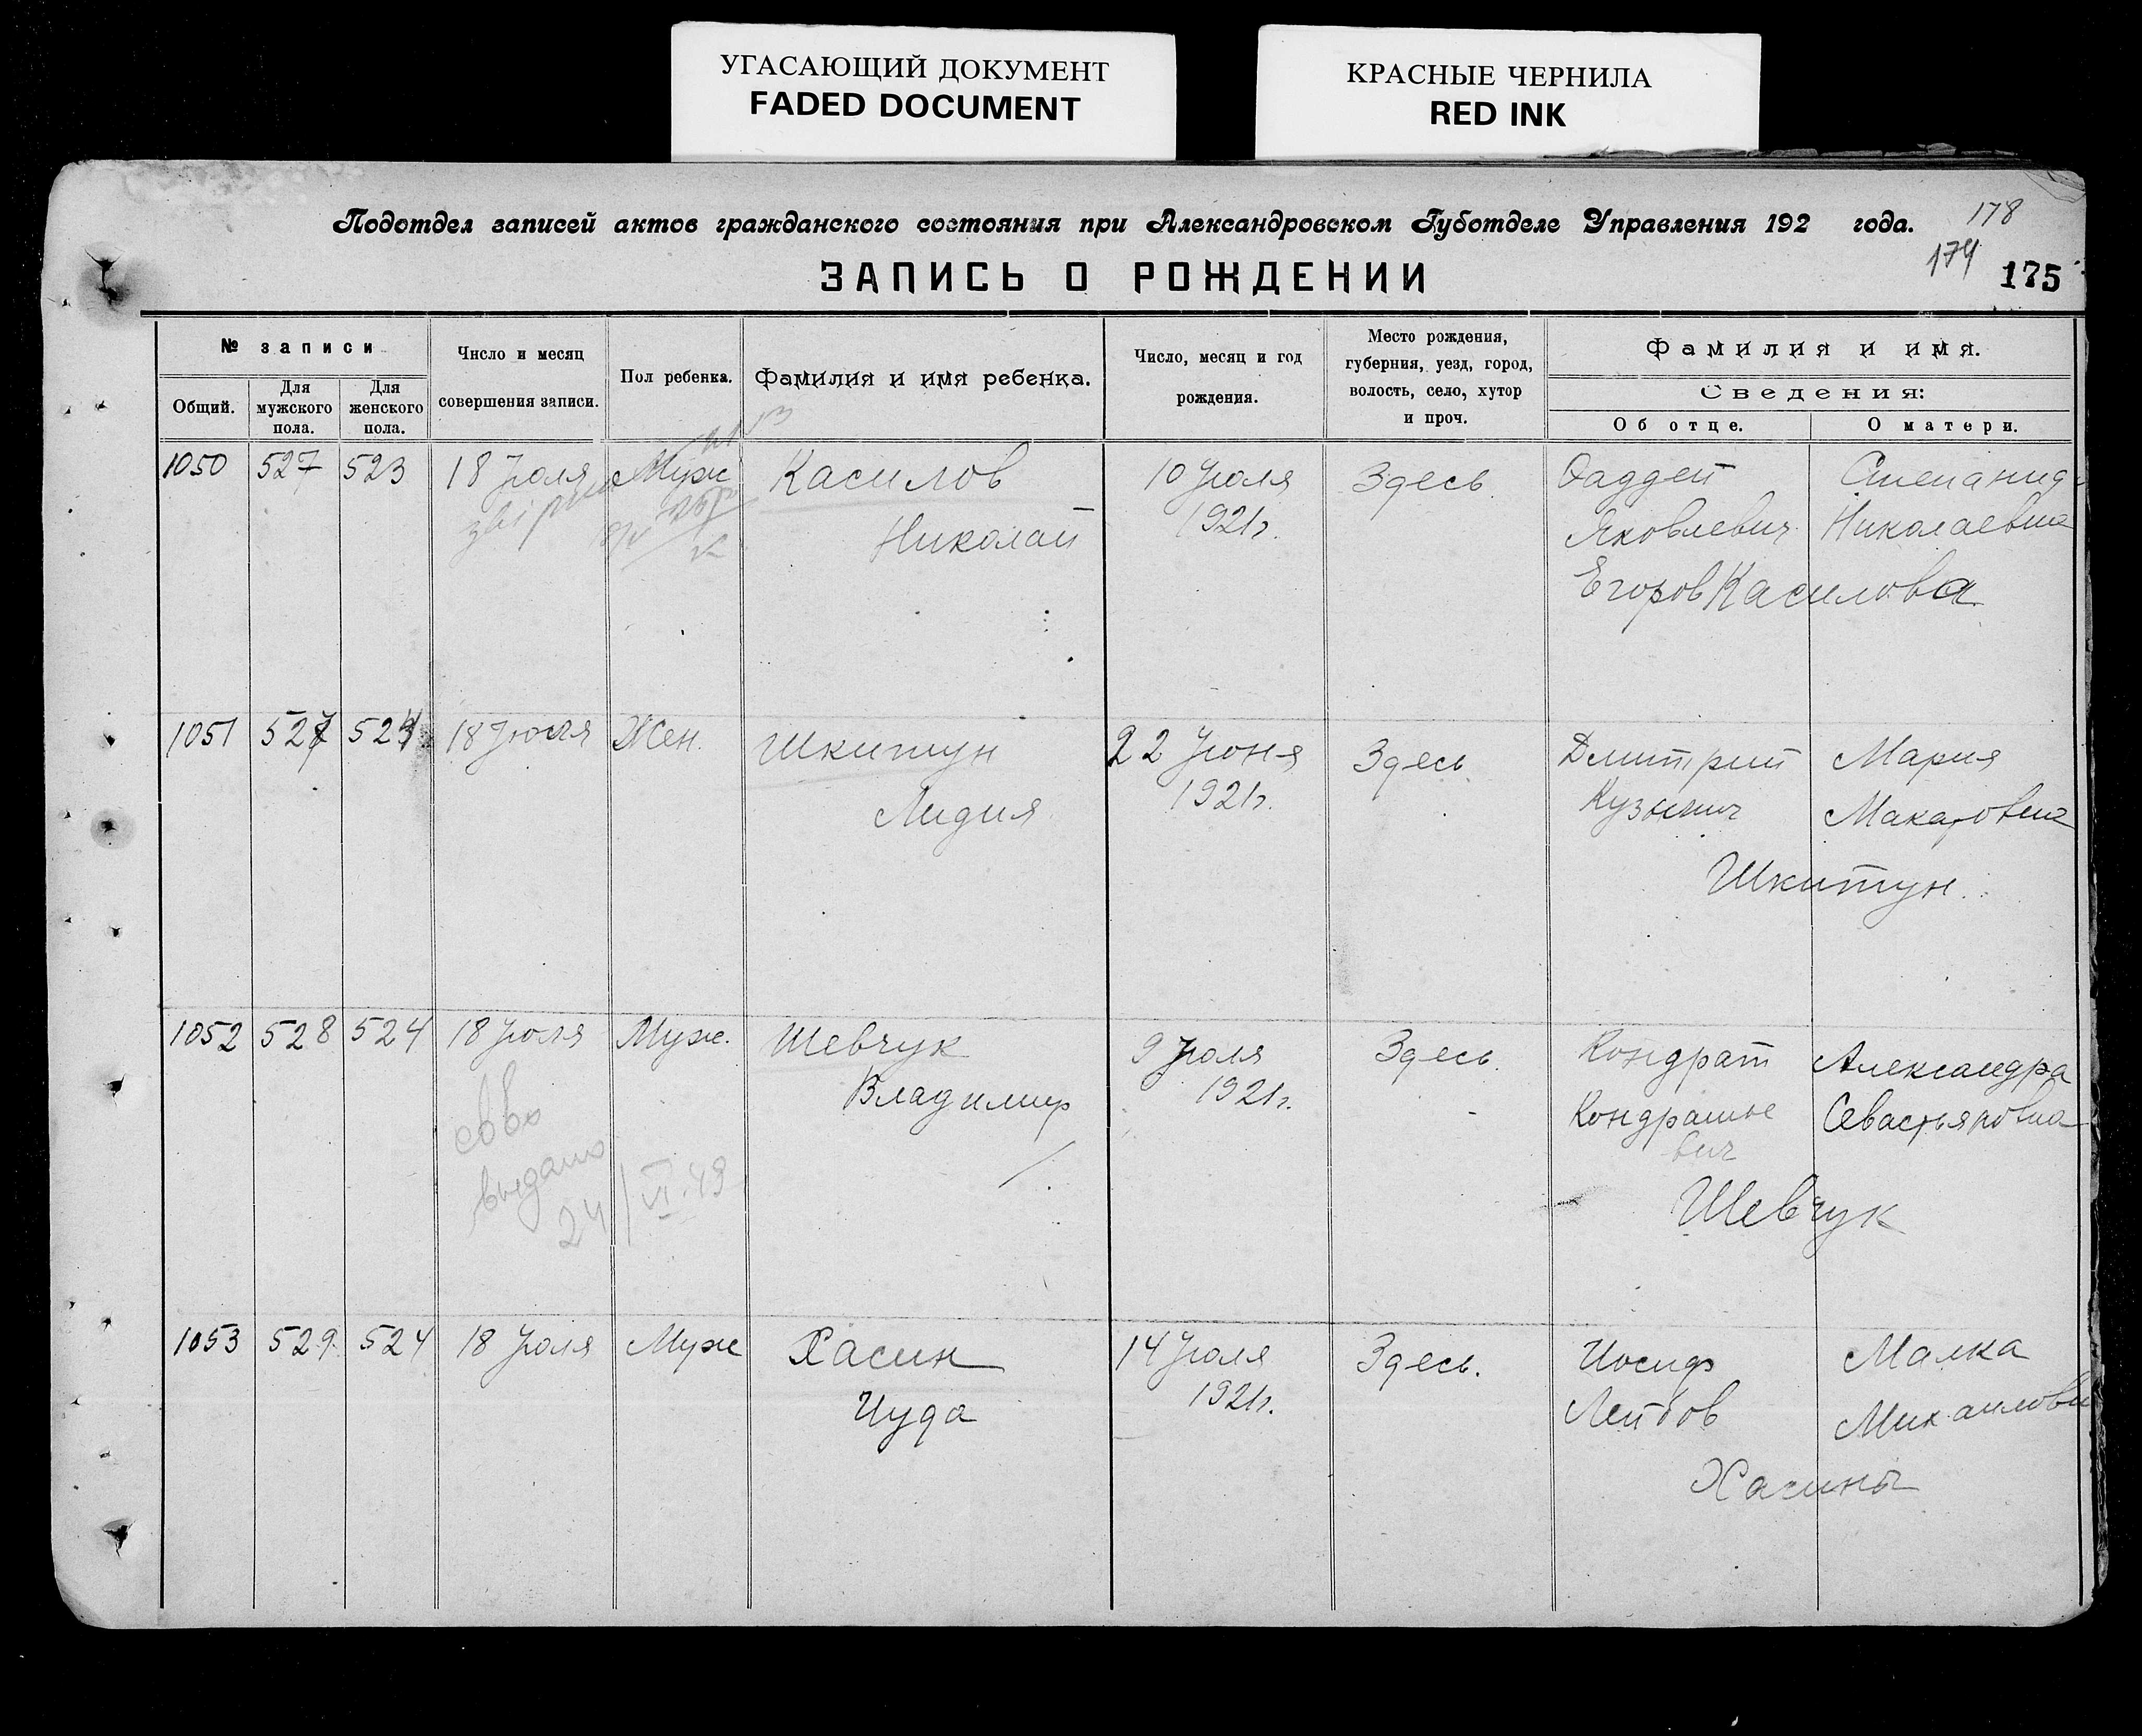 УГАСАЮЩИЙ ДОКУМЕНТ
FADED DOCUMENT
КРАСНЫЕ ЧЕРНИЛА
RED INK
Подотдел записей актов гражданского состояния при Александровском Губотделе Управления 192 года.
178
174
175
ЗАПИСЬ О РОЖДЕНИИ
№ записи
Общий.
Для мужского пола.
Для женского пола.
Число и месяц
совершения записи.
Пол ребенка.
Фамилия и имя ребенка.
Число, месяц и год
рождения.
Место рождения,
губерния, уезд, город,
волость, село, хутор
и проч.
Фамилия и имя.
Сведения:
Об отце.
О матери.
1050 527 523 18 Июля Муж Касилов 10 Июля Здесь. Фаддей Степанид
Николай 1921г. Яковлевич Николаевна
Егоров Касилова
1051 527 524 18 Июля Жен. Шкитун 22 Июня Здесь. Дмитрий Мария
Лидия 1921г. Кузьмич Макаровна
Шкитун.
1052 528 524 18 Июля Муж. Шевчук 9 Июля Здесь. Кондрат Александра
Владимир 1921г. Кондратье Севастьяновна
вич
выдано
24/VI.49
Шевчук
1053 529. 524 18 Июля Муж Хасин 14 Июля Здесь. Иосиф Малка
Иуда 1921г. Лейбов Михайловн
Хасины